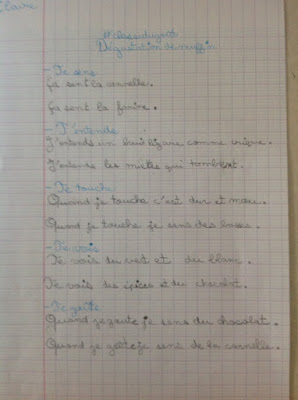 Claire
#classedugoût
Dégustation de muffin
- Je sens
Ça sent la cannelle.
Ça sent la farine.
- J'entends
J'entends un buit bizare comme
J'entends les miettes qui tombent.
- Je touche
Quand je touche c'est dur et mou.
Quand je touche je sens des bosses.
- Je vois
Je vois du vert et du blanc.
Je vois des épices et du chocolat.
- Je goûte
Quand je goute je sens du chocolat.
Quand je goûte je sens de la cannelle.